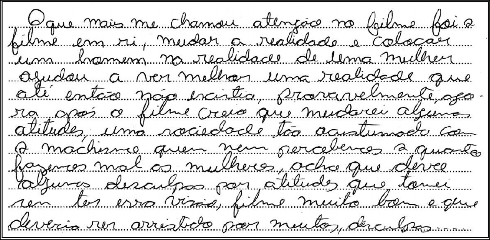 O que mais me chamou atenção no filme foi o
filme em si, mudar a realidade e colocar
um homem na realidade de uma mulher
ajudou a ver melhor uma realidade que
até então não existia, provavelmente, ago-
ra após o filme creio que mudarei algumas
atitudes, uma sociedade tão acostumada com
o machismo quem nem percebemos o quanto
fazemos mal as mulheres, acho que devo
algumas desculpas por atitudes que tomei
sem ter essa visão, filme muito bom e que
deveria ser assistido por muitos, desculpa